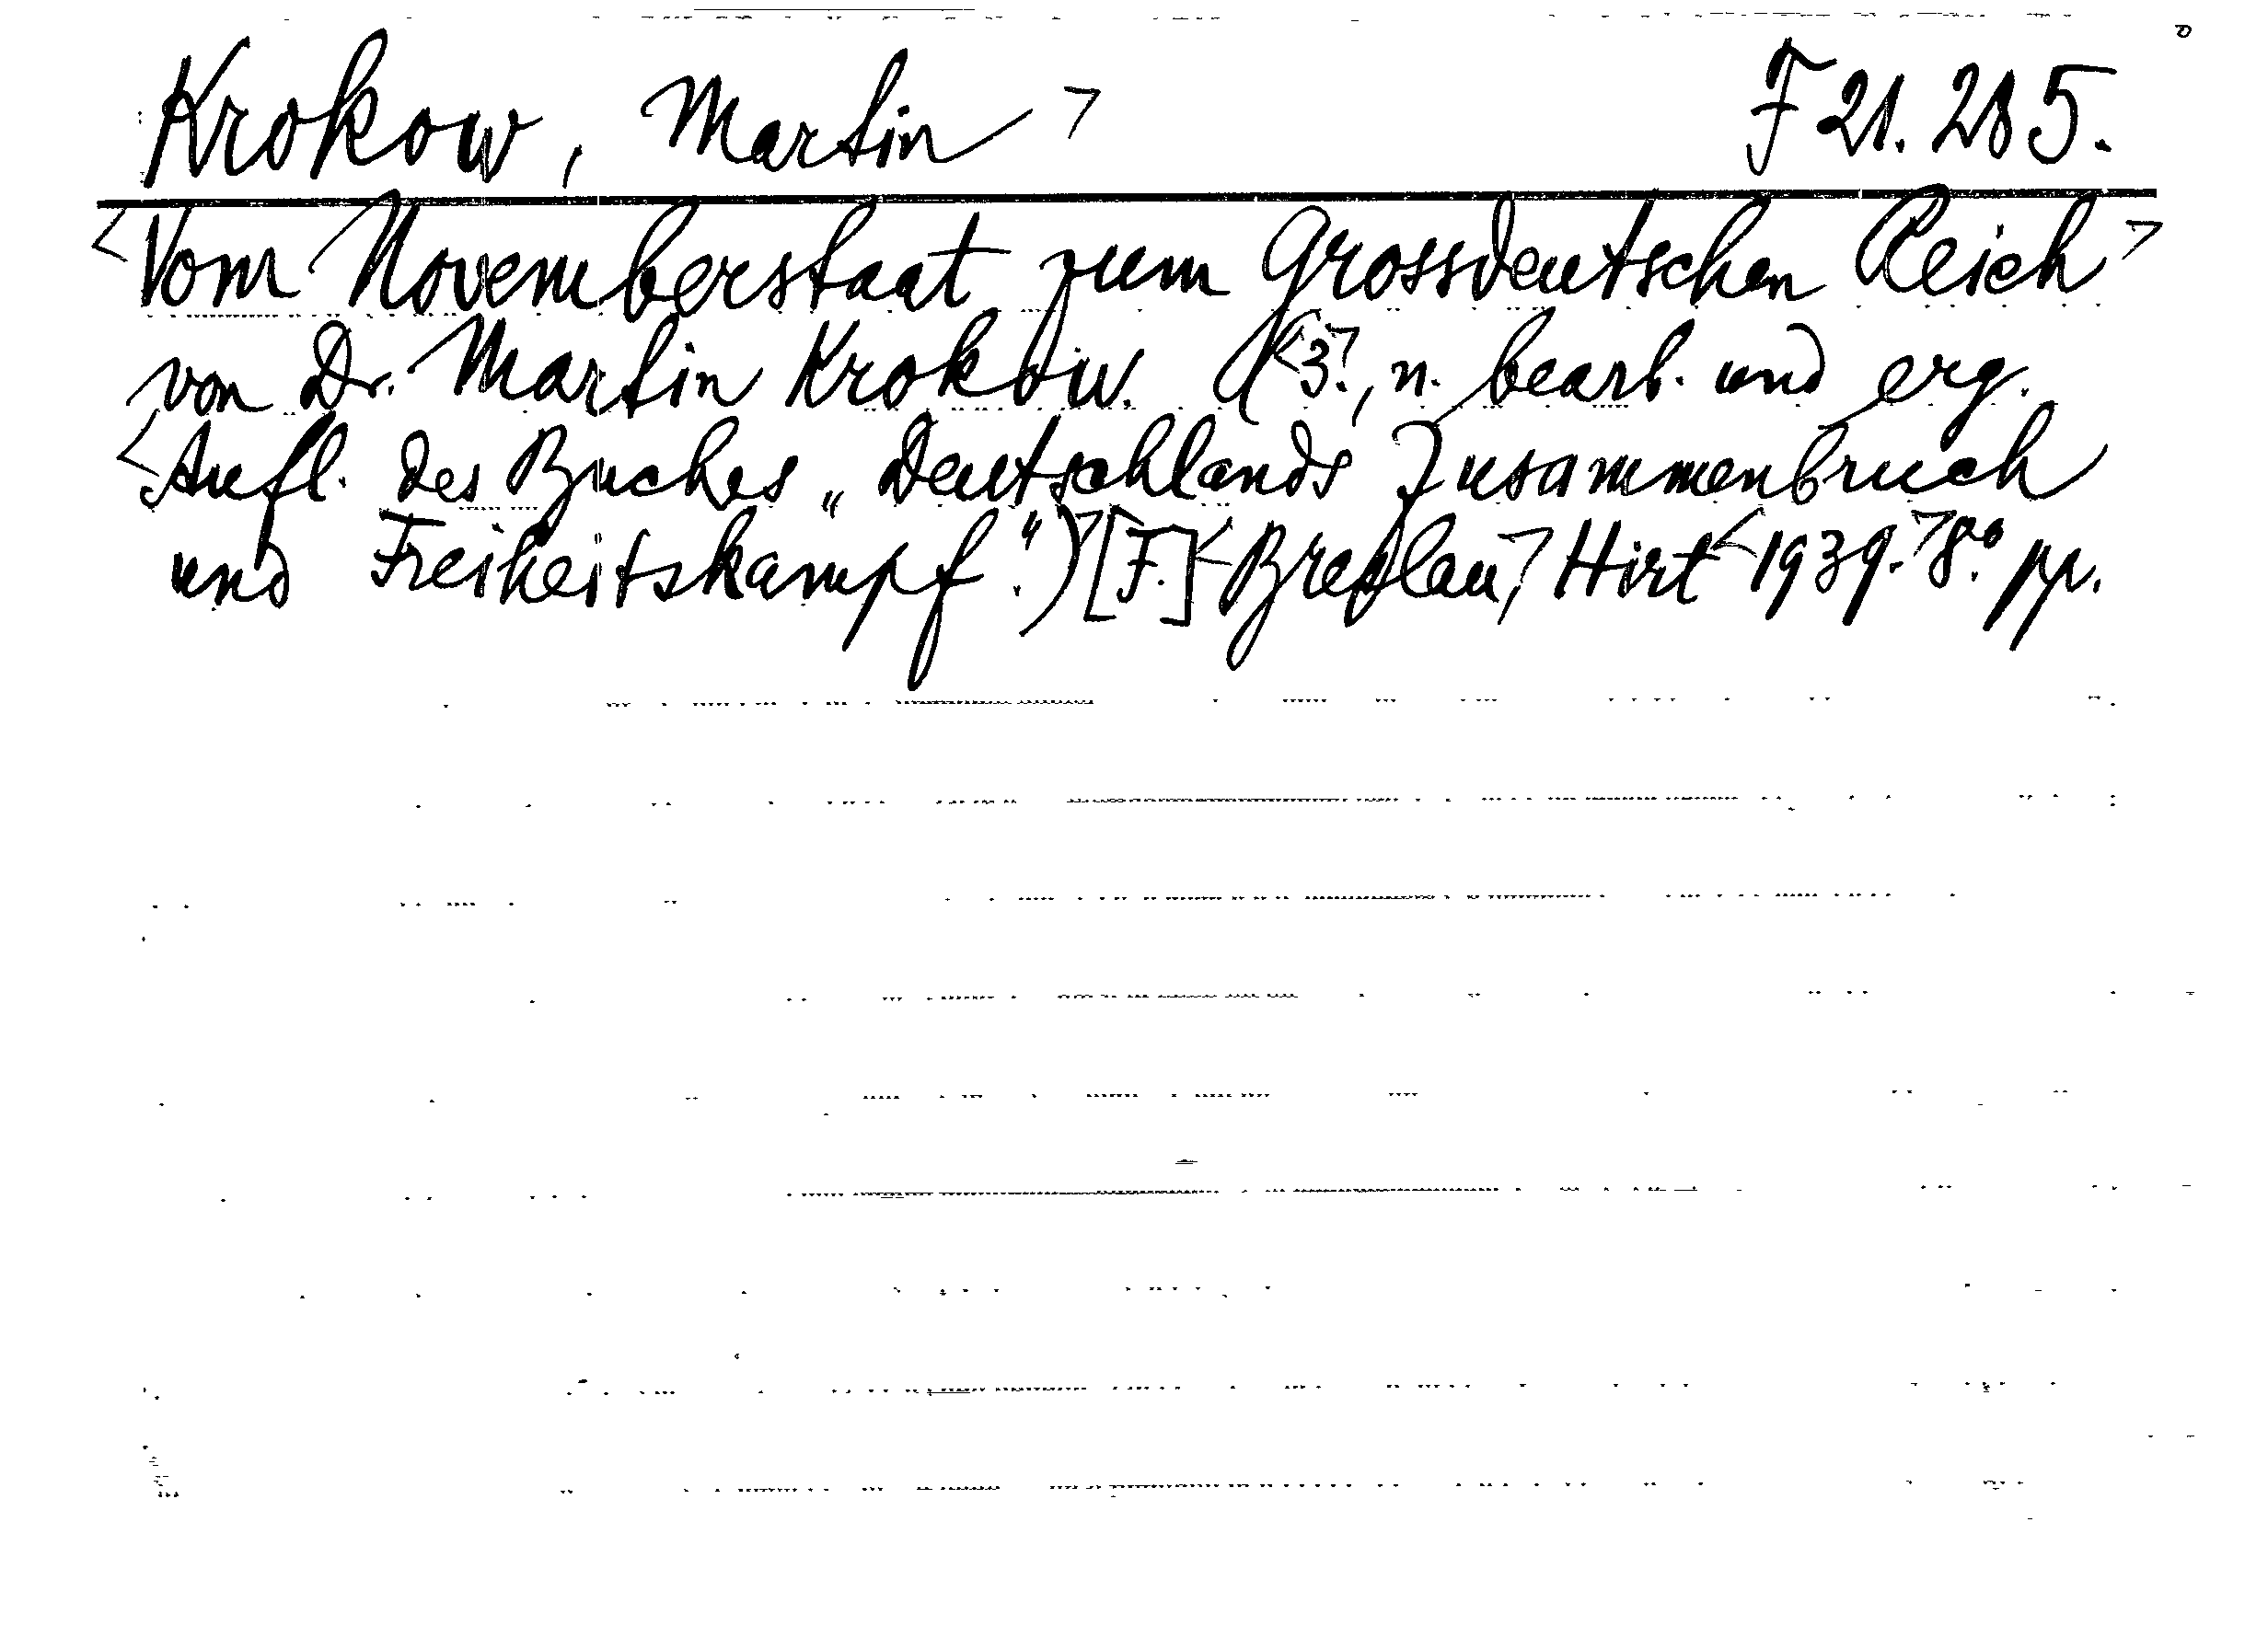 Krokow, Martin> F 21.285.
<Vom Novemberstaat zum Grossdeutschen Reich>
von Dr. Martin Krokow. (<3.>, n. bearb. und erg.
<Aufl. des Buches „Deutschlands Zusammenbruch
und Freiheitskampf“.)> [F.] <Breßlau,> Hirt <1939.> 8.° pp.